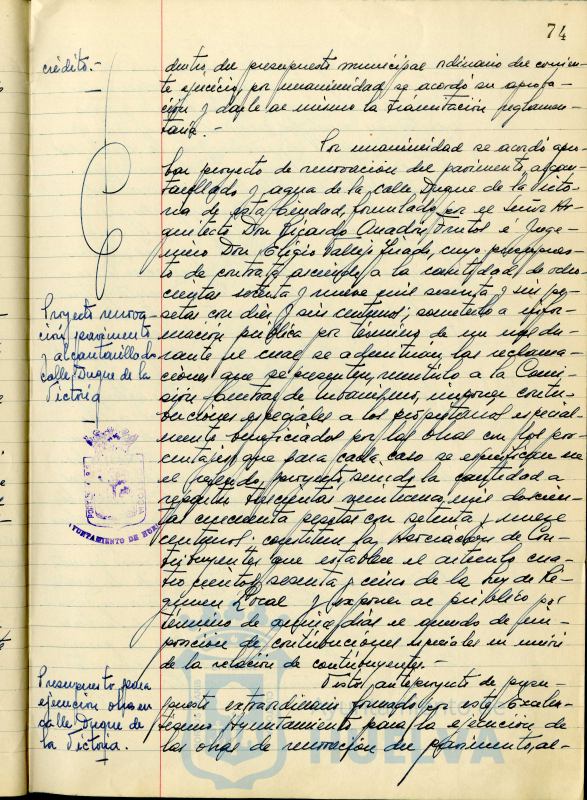 74
crédito.-
dentro del presupuesto municipal ordinario del corrien-
te ejercicio, por unanimidad se acordó su aproba-
ción y darle al mismo la tramitación reglamen-
taria.-
Por unanimidad se acordó apro-
bar proyecto de renovación del pavimento, alcan-
tarillado y agua de la calle Duque de la Victo-
ria de esta Ciudad, formulado por el Señor Ar-
quitecto Don Ricardo Anadón Frutos e Inge-
niero Don Eligio Vallejo, cuyo presupues-
to de contrata asciende a la cantidad de ocho-
cientas setenta y nueve mil sesenta y seis pe-
setas con diez y seis centimos; someterlo a infor-
mación pública por término de un mes du-
rante el cual se admitirán las reclama-
ciones que se presenten, remitirlo a la Comi-
sión Central de Urbanismo, imponer contri-
buciones especiales a los propietarios especial-
mente beneficiados por las obras con los por-
centajes que para cada caso se especifican en
el referido proyecto, siendo la cantidad a
repartir trescientas mil doscien-
tas cincuenta pesetas con setenta y nueve
centimos; constituir la Asociación de Con-
tribuyentes que establece el artículo cua-
trocientos sesenta y cinco de la Ley de Ré-
gimen Local y exponer al público por
término de quince días el acuerdo de im-
posición de contribuciones especiales en unión
de la relación de contribuyentes.-
Proyecto renova-
ción pavimento
y alcantarillado
calle Duque de la
Victoria
AYUNTAMIENTO DE HUELVA
Presupuesto para
ejecución obras en
calle Duque de
la Victoria.
Visto anteproyecto de presu-
puesto extraordinario formado por este Exce-
lentísimo Ayuntamiento para la ejecución de
las obras de renovación del pavimento, al-
HUELVA